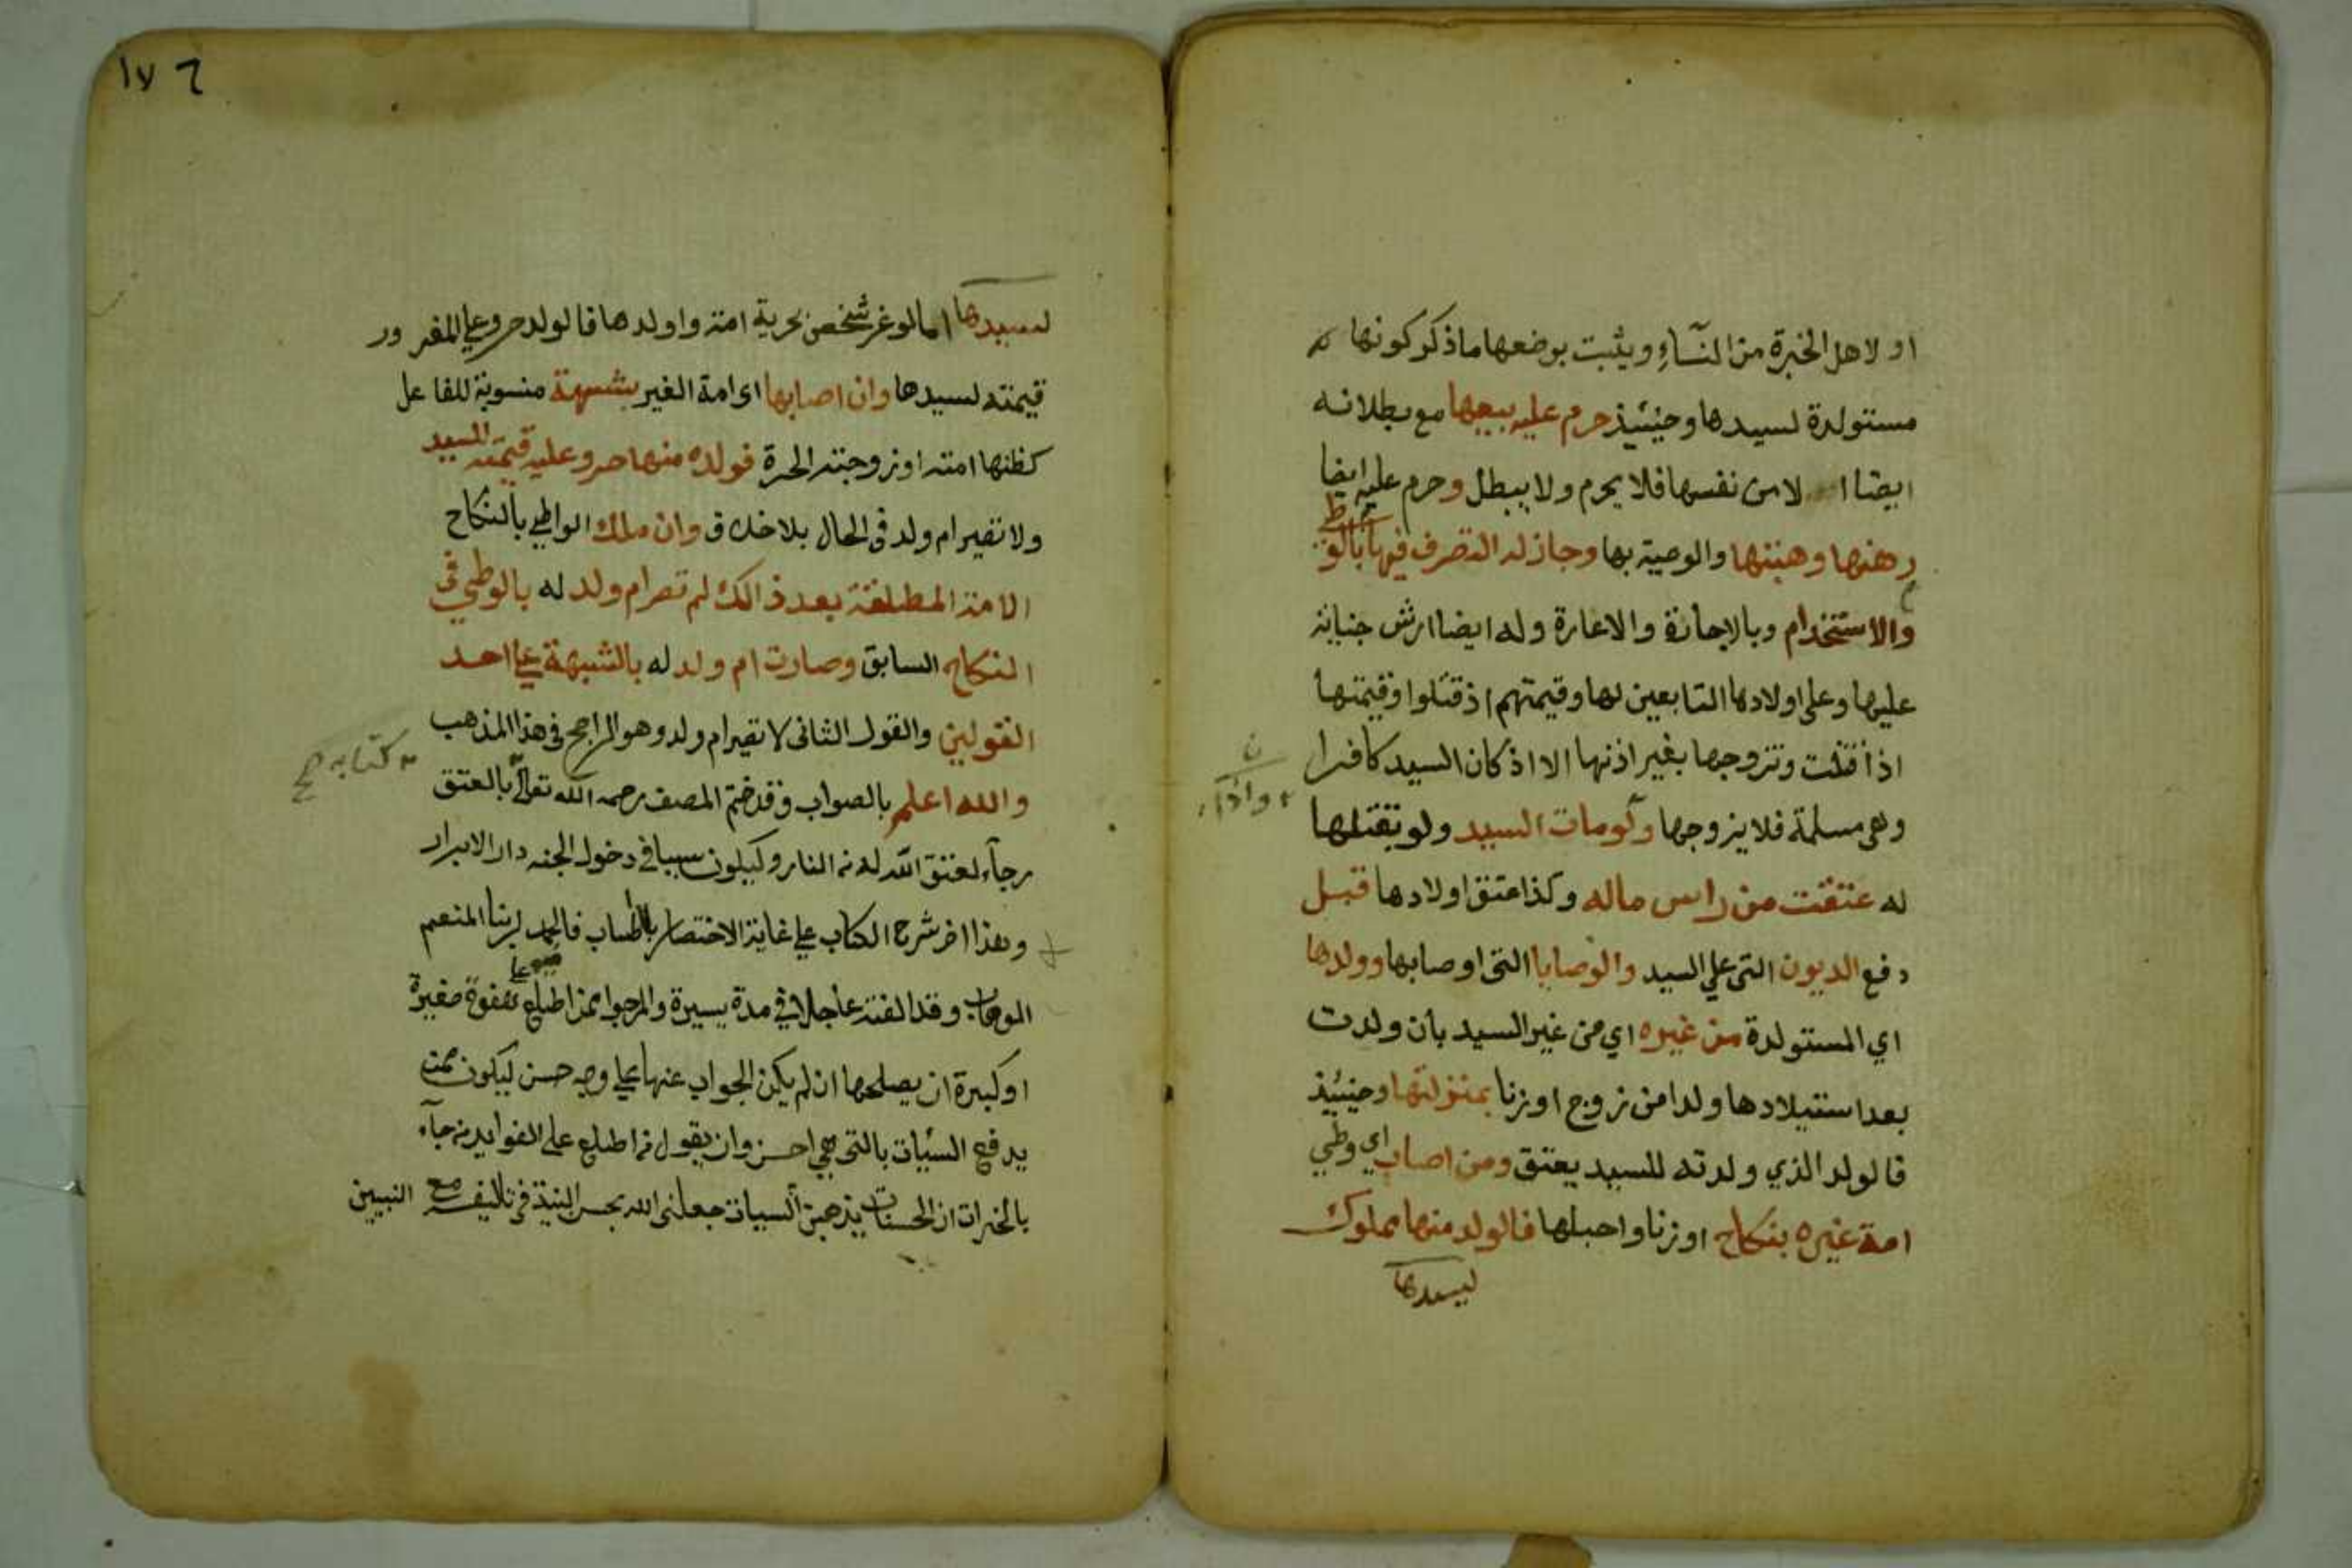 او لاهل الخبرة من النسآء ويثبت بوضعها ما ذكر كونها
مستولدة لسيدها وحينئيذ حرم عليه بيعها مع بطلانه
ايضا الا من نفسها فلا يحرم ولا يبطل وحرم عليه ايضا
رهنها وهبتها والوصية بها وجاز له التصرف فيها بالوطي
والاستخدام وبالاجارة والاعارة وله ايضا ارش جناية
عليها وعلى اولادها التابعين لها وقيمتهم اذ قتلوا وقيمتها
اذا قتلت وتزوجها بغير اذنها الا اذ كان السيد كافرا
وهي مسلمة فلا يزوجها ولو مات السيد ولو بقتلها
واذا
له عتقت من راس ماله وكذا عتق اولادها قبل
دفع الديون التي علي السيد والوصايا التي اوصا بها وولدها
اي المستولدة من غيره اي من غير السيد بان ولدت
بعد استيلادها ولدا من زوج او زنا بمنزلتها وحينئيذ
فالولد الذي ولدته للسيد يعتق ومن اصاب اي وطي
امة غيره بنكاح او زنا واحبلها فالولد منها مملوك
لسيدها
١٧٦
لسيدها اما لو غر شخص بحرية امة واولدها فالولد حر وعلي المغرور
قيمته لسيدها وان اصابها اي امة الغير بشبهة منسوبة للفاعل
كظنها امته او زوجته الحرة فولده منها حر وعليه قيمته للسيد
ولا تصير ام ولد في الحال بلا خلاف وان ملك الواطي بالنكاح
الامة المطلقة بعد ذالك لم تصر ام ولد له بالوطي في
النكاح السابق وصارت ام ولد له بالشبهة علي احد
القولين والقول الثاني لا تصير ام ولد وهو الراجح في هذا المذهب
والله اعلم بالصواب وقد ختم المصنف رحمه الله تعالي بالعتق
كتابه صح
رجآء لعتق الله له من النار وليكون سببا في دخول الجنه دار الابرار
وهذا اخر شرح الكتاب علي غاية الاختصار بلا اطناب فالحمد لربنا المنعم
الوهاب وقد الفته عاجلا في مدة يسيرة والمرجوا ممن اطلع علي هفوة صغيرة
او كبيرة ان يصلحها ان لم يكن الجواب عنها علي وجه حسن ليكون ممن
يدفع السئيات بالتي هي احسن وان يقول من اطلع علي الفوايد من جآء
بالخيرات ان الحسنات يذهبن السيات جعلني الله بحسن النية في تاليفه مع النبيين